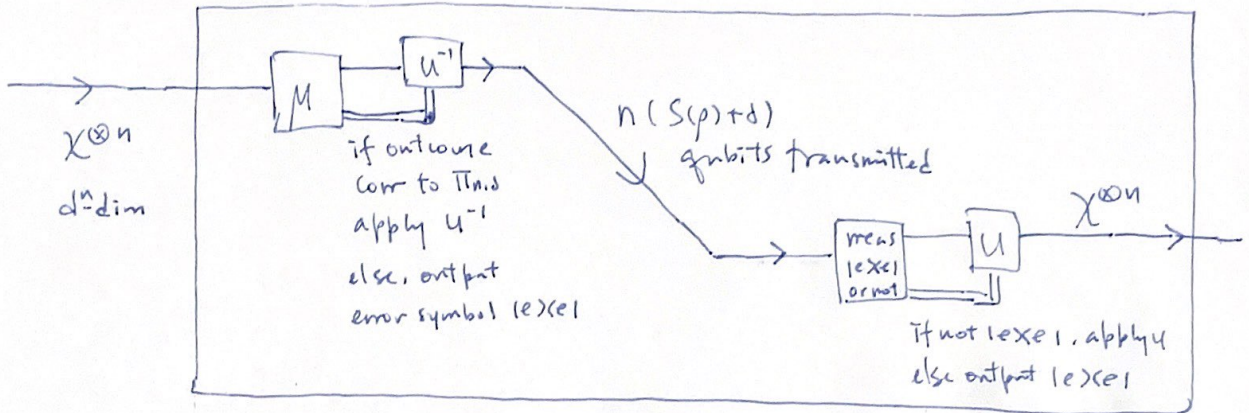 χ^{⊗n}
d^n-dim
M
U^{-1}
if outcome
corr to Π_{n,δ}
apply U^{-1}
else, output
error symbol |e><e|
n(S(ρ)+δ)
qubits transmitted
meas
|e><e|
or not
U
χ^{⊗n}
if not |e><e|, apply U
else output |e><e|